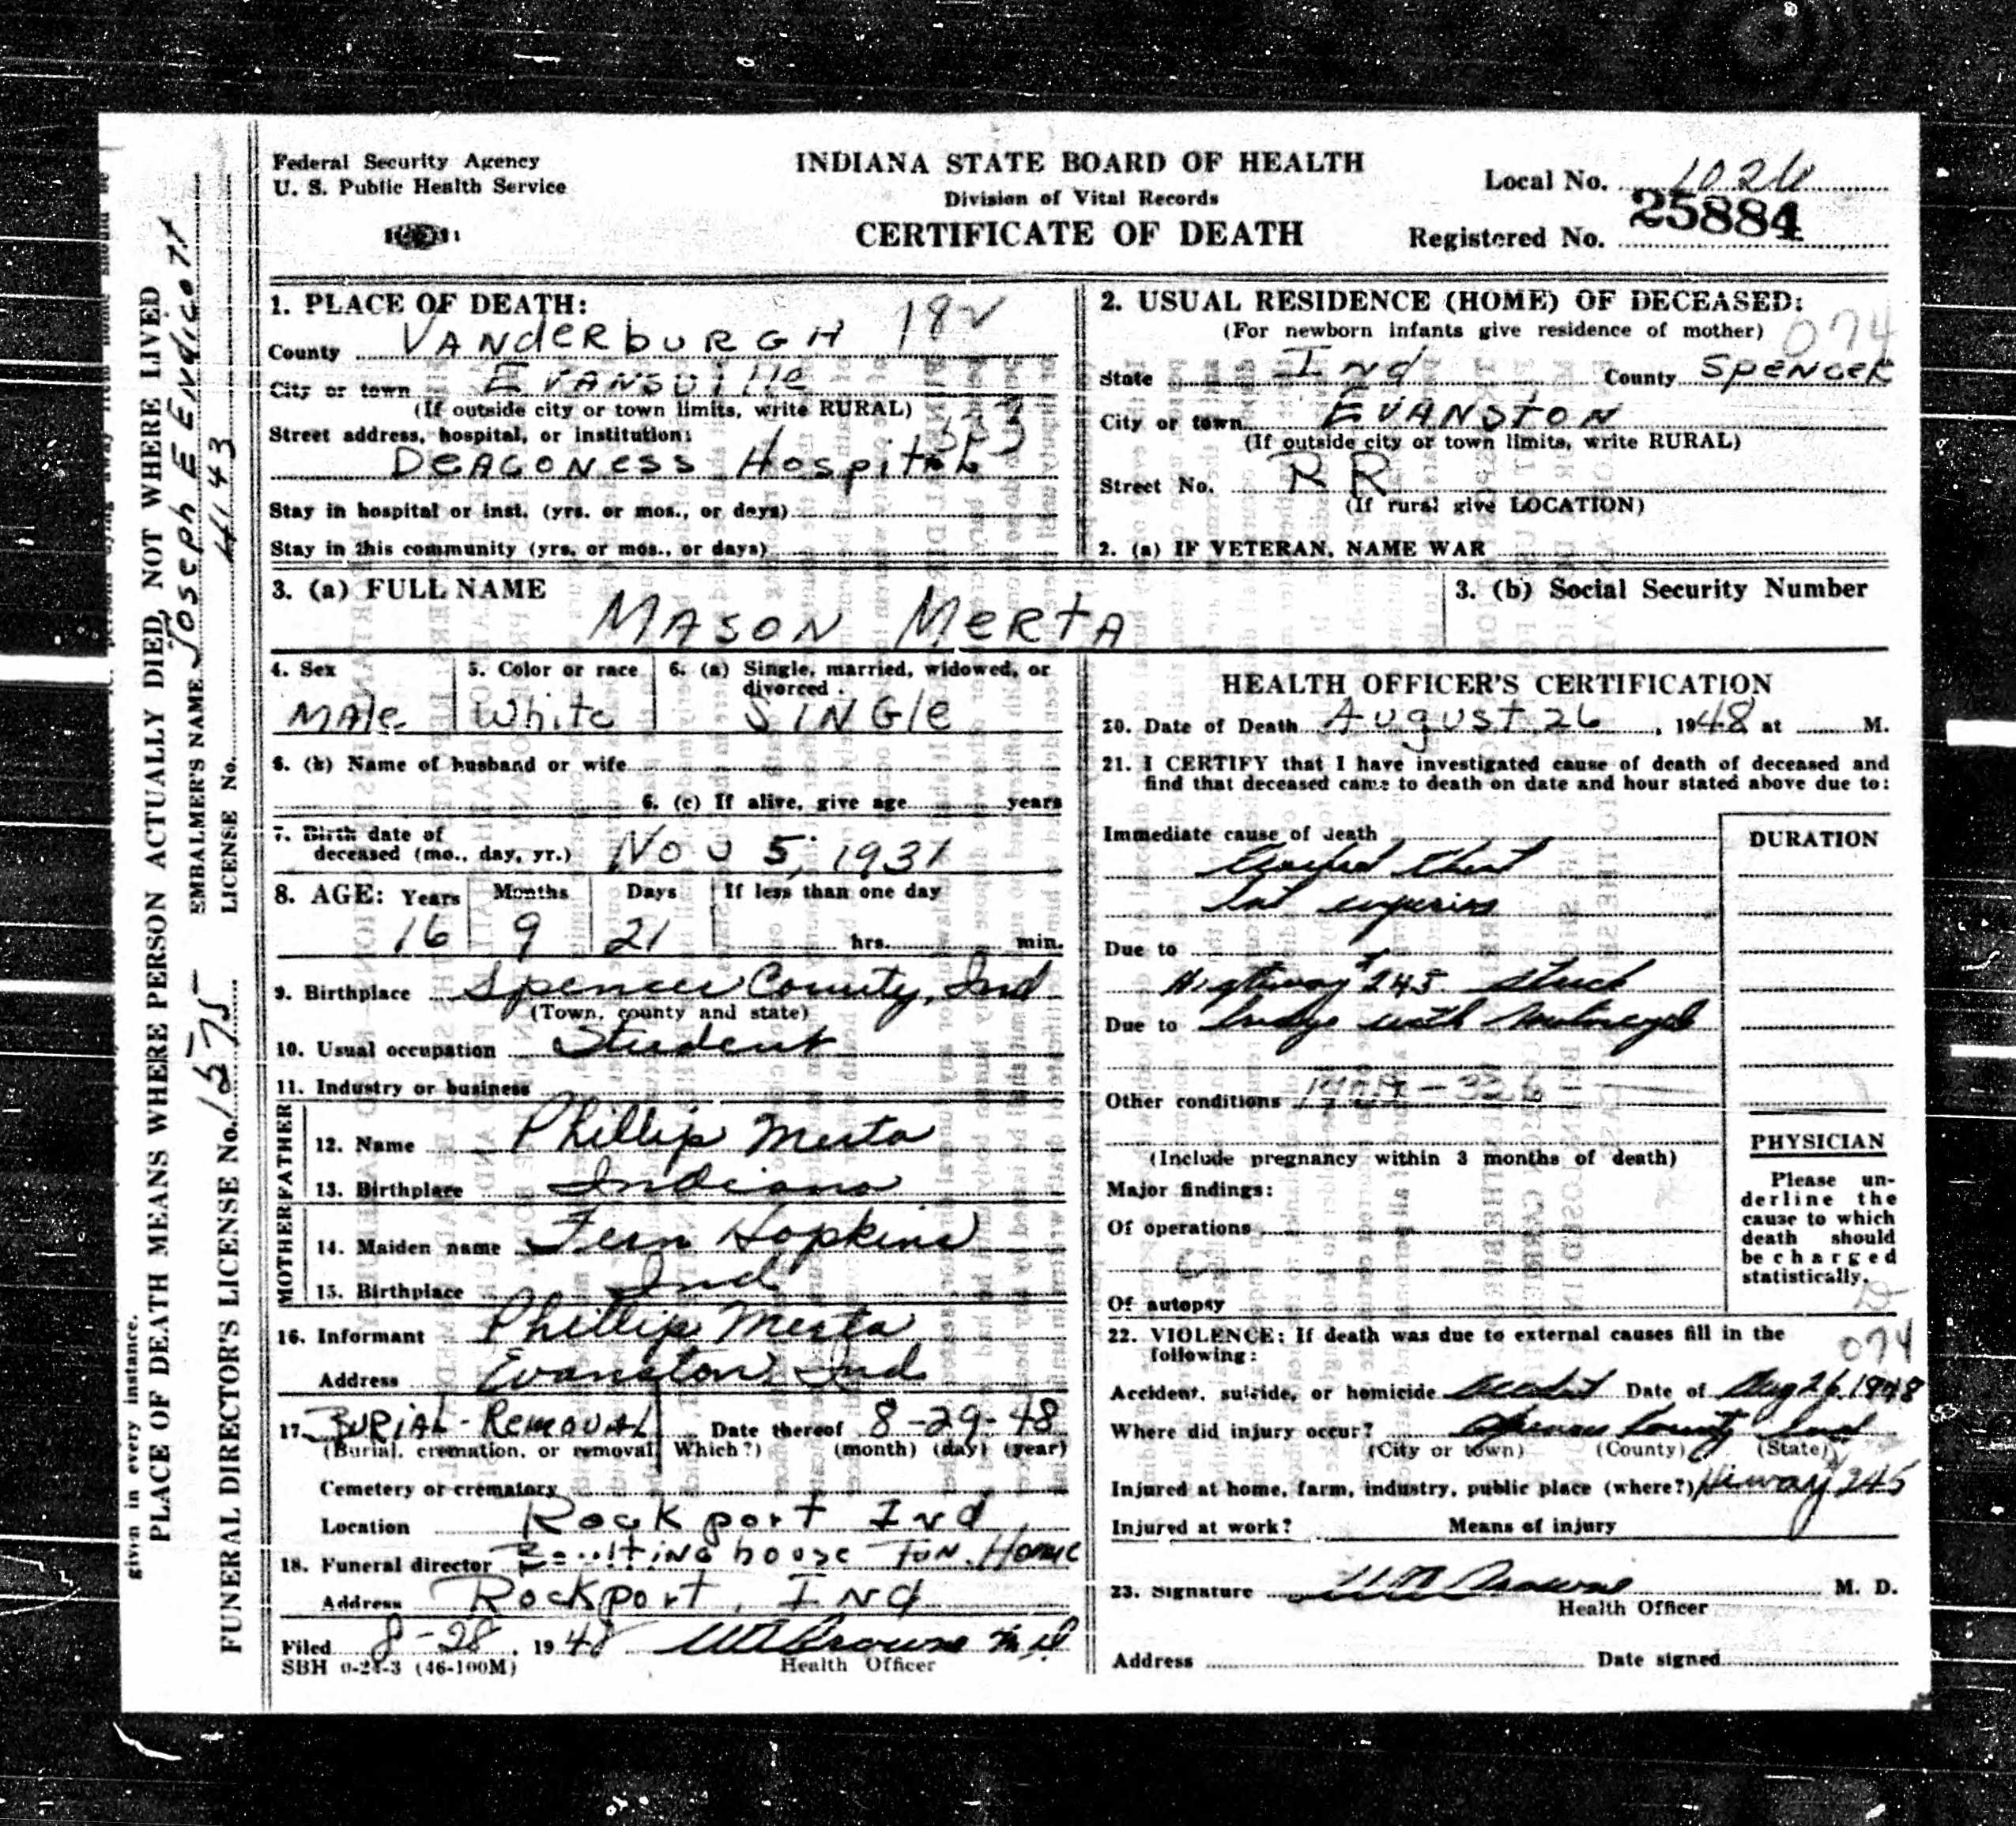 Federal Security Agency
U. S. Public Health Service
INDIANA STATE BOARD OF HEALTH
Division of Vital Records
CERTIFICATE OF DEATH
Local No. 1026
Registered No. 25884
1. PLACE OF DEATH: 18
County VANderburGH
City or town EVANSville
(If outside city or town limits, write RURAL)
Street address, hospital, or institution:
DEACONess Hospital
Stay in hospital or inst. (yrs. or mos., or days)
Stay in this community (yrs. or mos., or days)
2. USUAL RESIDENCE (HOME) OF DECEASED:
(For newborn infants give residence of mother) 074
State Ind County SpeNcer
City or town EVANSTON
(If outside city or town limits, write RURAL)
Street No. RR
(If rural give LOCATION)
2. (a) IF VETERAN, NAME WAR
3. (a) FULL NAME MASON MertA
3. (b) Social Security Number
4. Sex MAle
5. Color or race White
6. (a) Single, married, widowed, or divorced. SINGle
6. (b) Name of husband or wife
6. (c) If alive, give age years
7. Birth date of
deceased (mo., day, yr.) Nov 5, 1931
8. AGE: Years Months Days If less than one day
16 9 21 hrs. min.
9. Birthplace Spencer County, Ind
(Town, county and state)
10. Usual occupation Student
11. Industry or business
FATHER
12. Name Phillip Merta
13. Birthplace Indiana
MOTHER
14. Maiden name Fern Hopkins
15. Birthplace Ind
16. Informant Phillip Merta
Address Evanston Ind
17. BURIAL-RemovAL Date thereof 8-29-48
(Burial, cremation, or removal. Which?) (month) (day) (year)
Cemetery or crematory
Location Rockport Ind
18. Funeral director Boultinghouse Fun. Home
Address Rockport, Ind
Filed 8-28, 1948
Health Officer
SBH 0-24-3 (46-100M)
HEALTH OFFICER'S CERTIFICATION
20. Date of Death August 26, 1948 at M.
21. I CERTIFY that I have investigated cause of death of deceased and
find that deceased came to death on date and hour stated above due to:
Immediate cause of death
Crushed Chest
Int injuries
Due to
Highway # 245 Struck
Due to bridge with Motorcycle
Other conditions
(Include pregnancy within 3 months of death)
Major findings:
Of operations
Of autopsy
DURATION
PHYSICIAN
Please un-
derline the
cause to which
death should
be charged
statistically.
22. VIOLENCE: If death was due to external causes fill in the
following: 074
Accident, suicide, or homicide Accident Date of Aug 26, 1948
Where did injury occur? Spencer County Ind
(City or town) (County) (State)
Injured at home, farm, industry, public place (where?) Hiway 245
Injured at work? Means of injury
23. Signature M. D.
Health Officer
Address Date signed
given in every instance.
PLACE OF DEATH MEANS WHERE PERSON ACTUALLY DIED, NOT WHERE LIVED
EMBALMER'S NAME Joseph E Endicott
FUNERAL DIRECTOR'S LICENSE No. 1575 LICENSE No. 4143